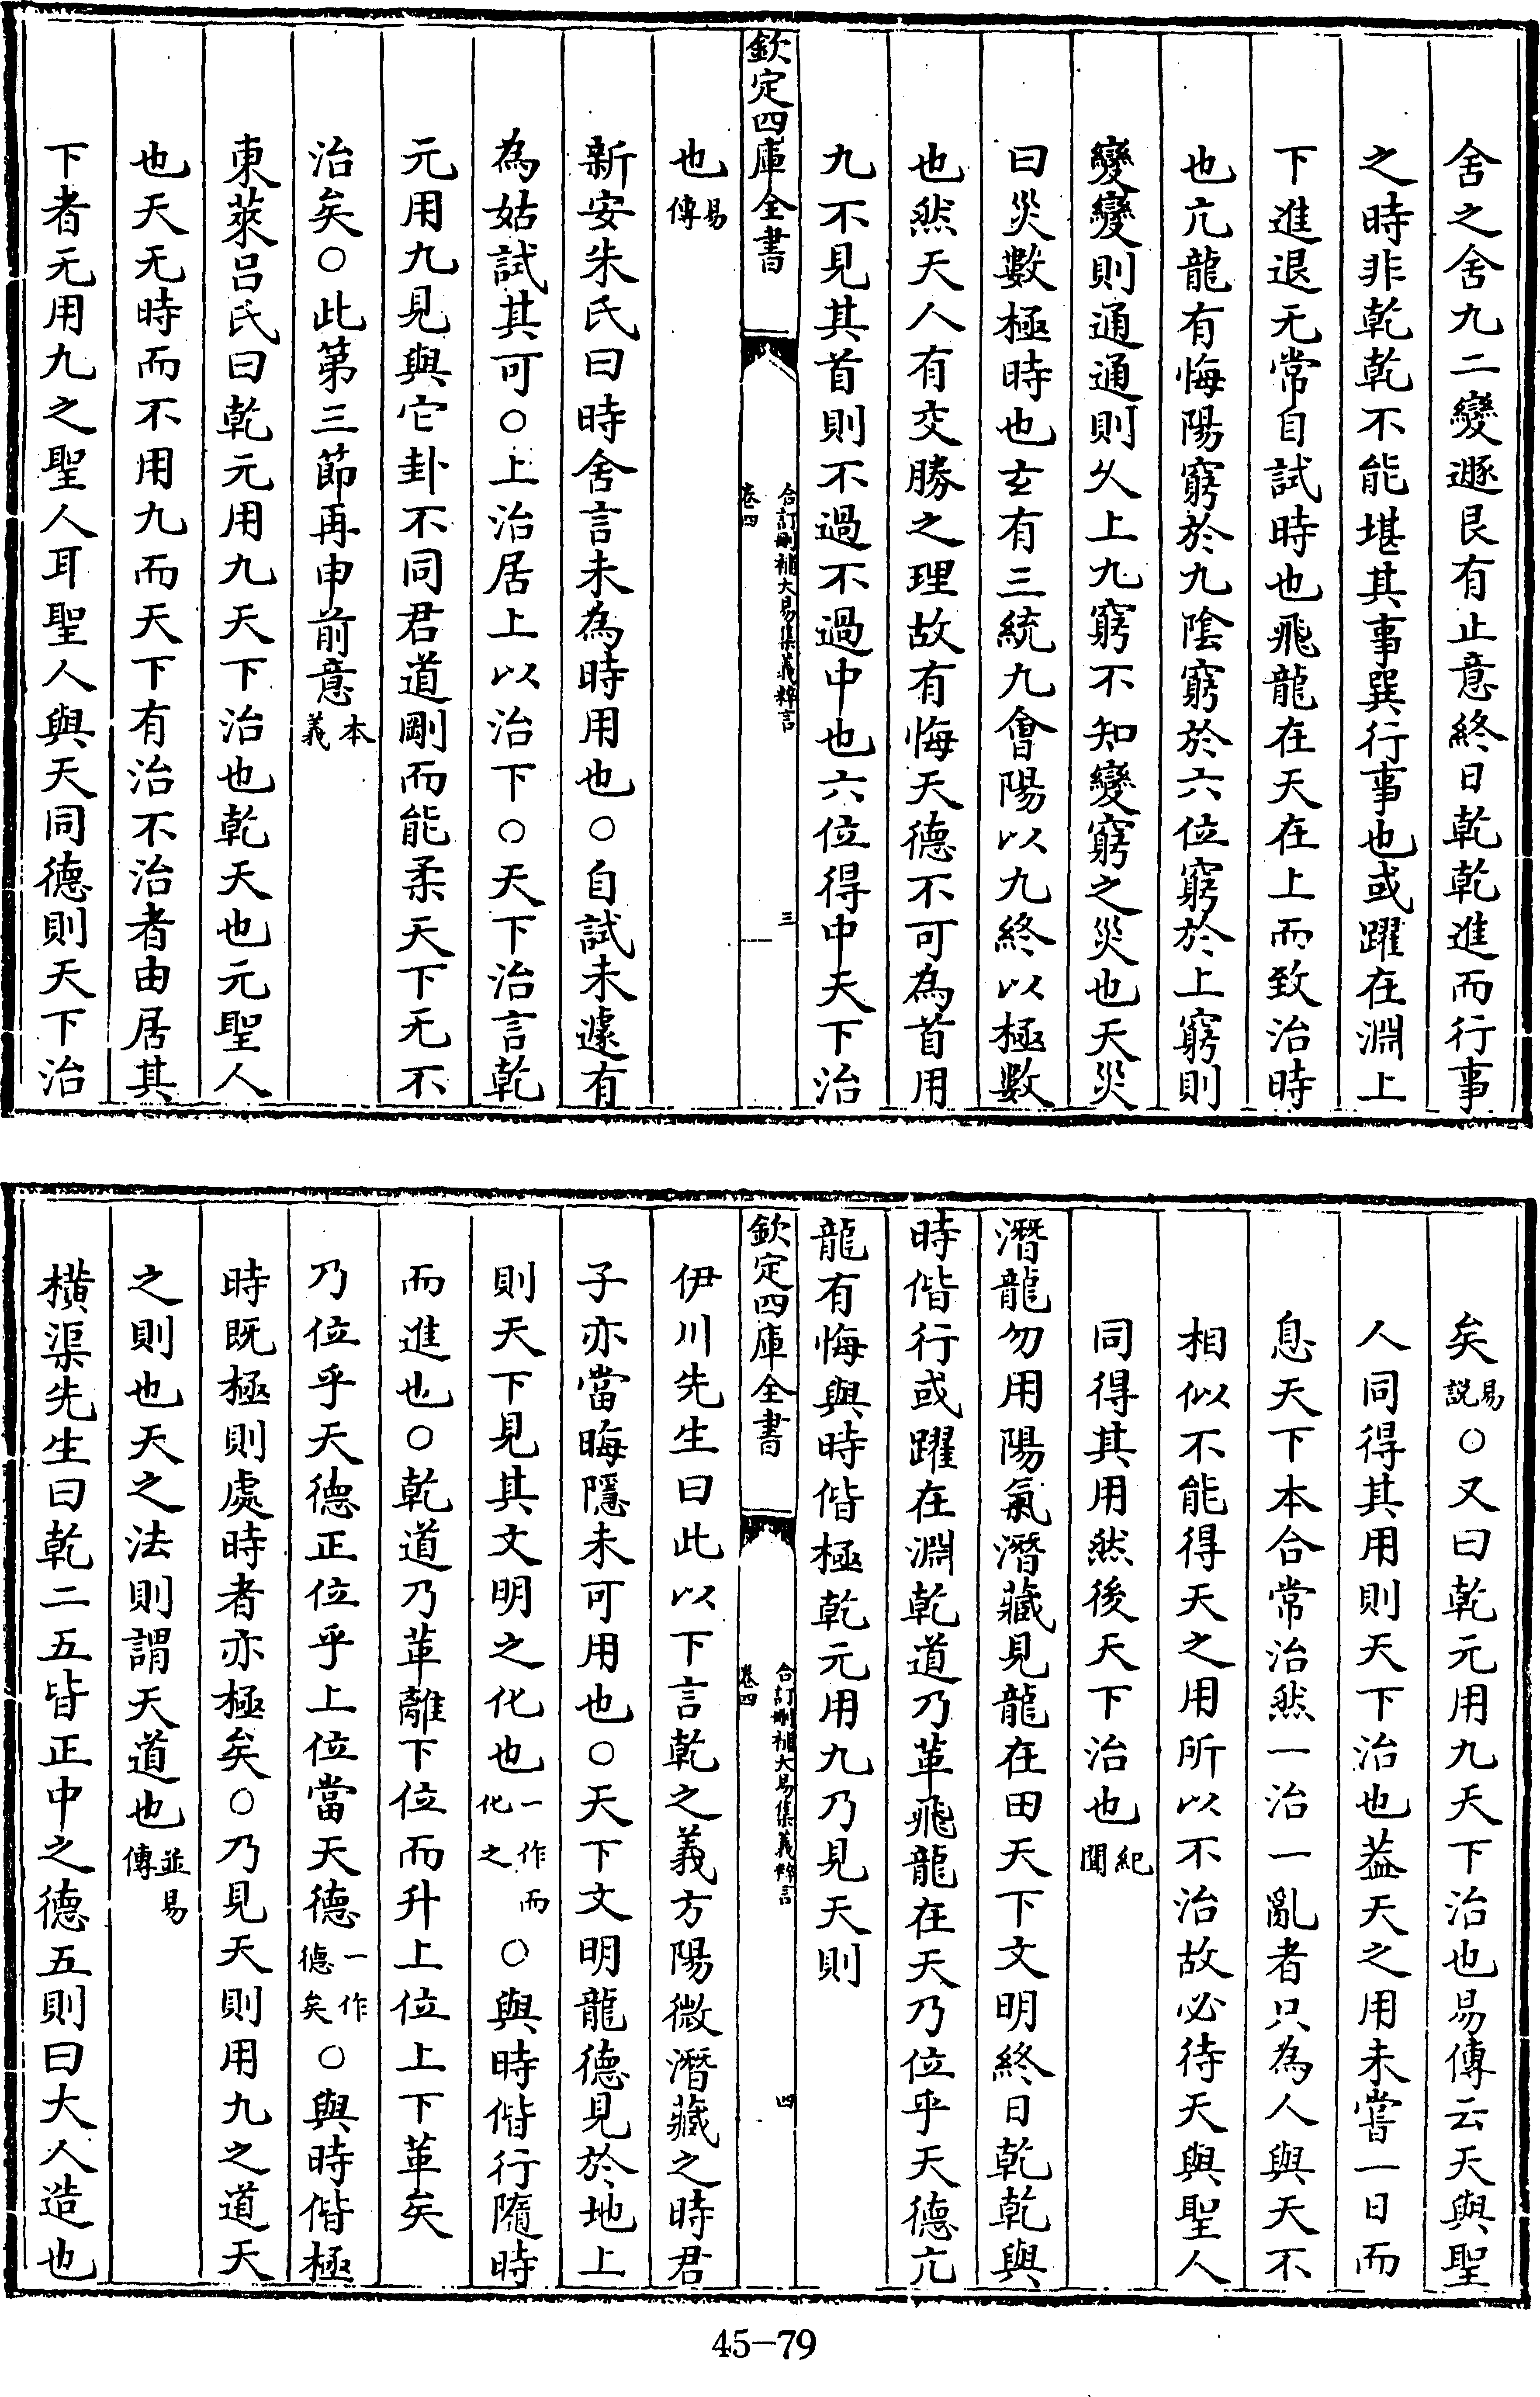 舍之舍九二變遯艮有止意終日乾乾進而行事
之時非乾乾不能堪其事巽行事也或躍在淵上
下進退无常自試時也飛龍在天在上而致治時
也亢龍有悔陽窮於九陰窮於六位窮於上窮則
變變則通通則久上九窮不知變窮之災也天災
曰災數極時也玄有三統九會陽以九終以極數
也然天人有交勝之理故有悔天德不可為首用
九不見其首則不過不過中也六位得中天下治
欽定四庫全書 合訂刪補大易集義粹言 卷四 三
也易傳
新安朱氏曰時舍言未為時用也○自試未遽有
為姑試其可○上治居上以治下○天下治言乾
元用九見與它卦不同君道剛而能柔天下无不
治矣○此第三節再申前意本義
東萊呂氏曰乾元用九天下治也乾天也元聖人
也天无時而不用九而天下有治不治者由居其
下者无用九之聖人耳聖人與天同德則天下治
矣易説○又曰乾元用九天下治也易傳云天與聖
人同得其用則天下治也葢天之用未嘗一日而
息天下本合常治然一治一亂者只為人與天不
相似不能得天之用所以不治故必待天與聖人
同得其用然後天下治也紀聞
潛龍勿用陽氣潛藏見龍在田天下文明終日乾乾與
時偕行或躍在淵乾道乃革飛龍在天乃位乎天德亢
龍有悔與時偕極乾元用九乃見天則
欽定四庫全書 合訂刪補大易集義粹言 卷四 四
伊川先生曰此以下言乾之義方陽微潛藏之時君
子亦當晦隱未可用也○天下文明龍德見於地上
則天下見其文明之化也一作而化之○與時偕行隨時
而進也○乾道乃革離下位而升上位上下革矣
乃位乎天德正位乎上位當天德一作德矣○與時偕極
時既極則處時者亦極矣○乃見天則用九之道天
之則也天之法則謂天道也並易傳
橫渠先生曰乾二五皆正中之德五則曰大人造也
45-79